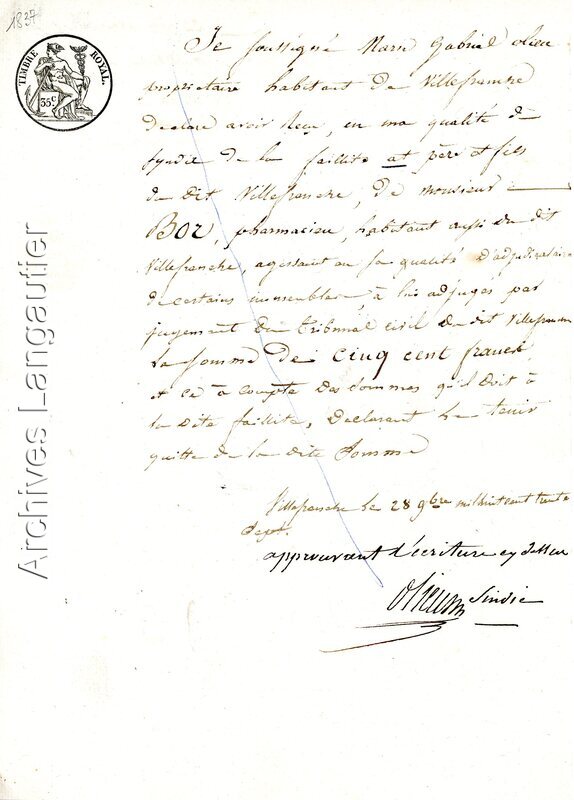 1837
TIMBRE ROYAL.
35c
Je soussigné Marie Gabriel
propriétaire habitant de Villefranche
declare avoir Recu, en ma qualité de
syndic de la faillite at père et fils
du dit Villefranche, de monsieur
Bor, pharmacien, habitant aussi du dit
Villefranche, agissant en sa qualité d'adjudicataire
de certains immeubles, à lui adjugés par
jugement du tribunal civil du dit Villefranche
La somme de cinq cent francs
et ce à compte des sommes qu'il doit à
la dite faillite, Declarant le tenir
quitte de la dite somme
Villefranche le 28 9bre mil huit cent trente
sept.
approuvant l'écriture cy dessus
Sindic
Archives Langautier